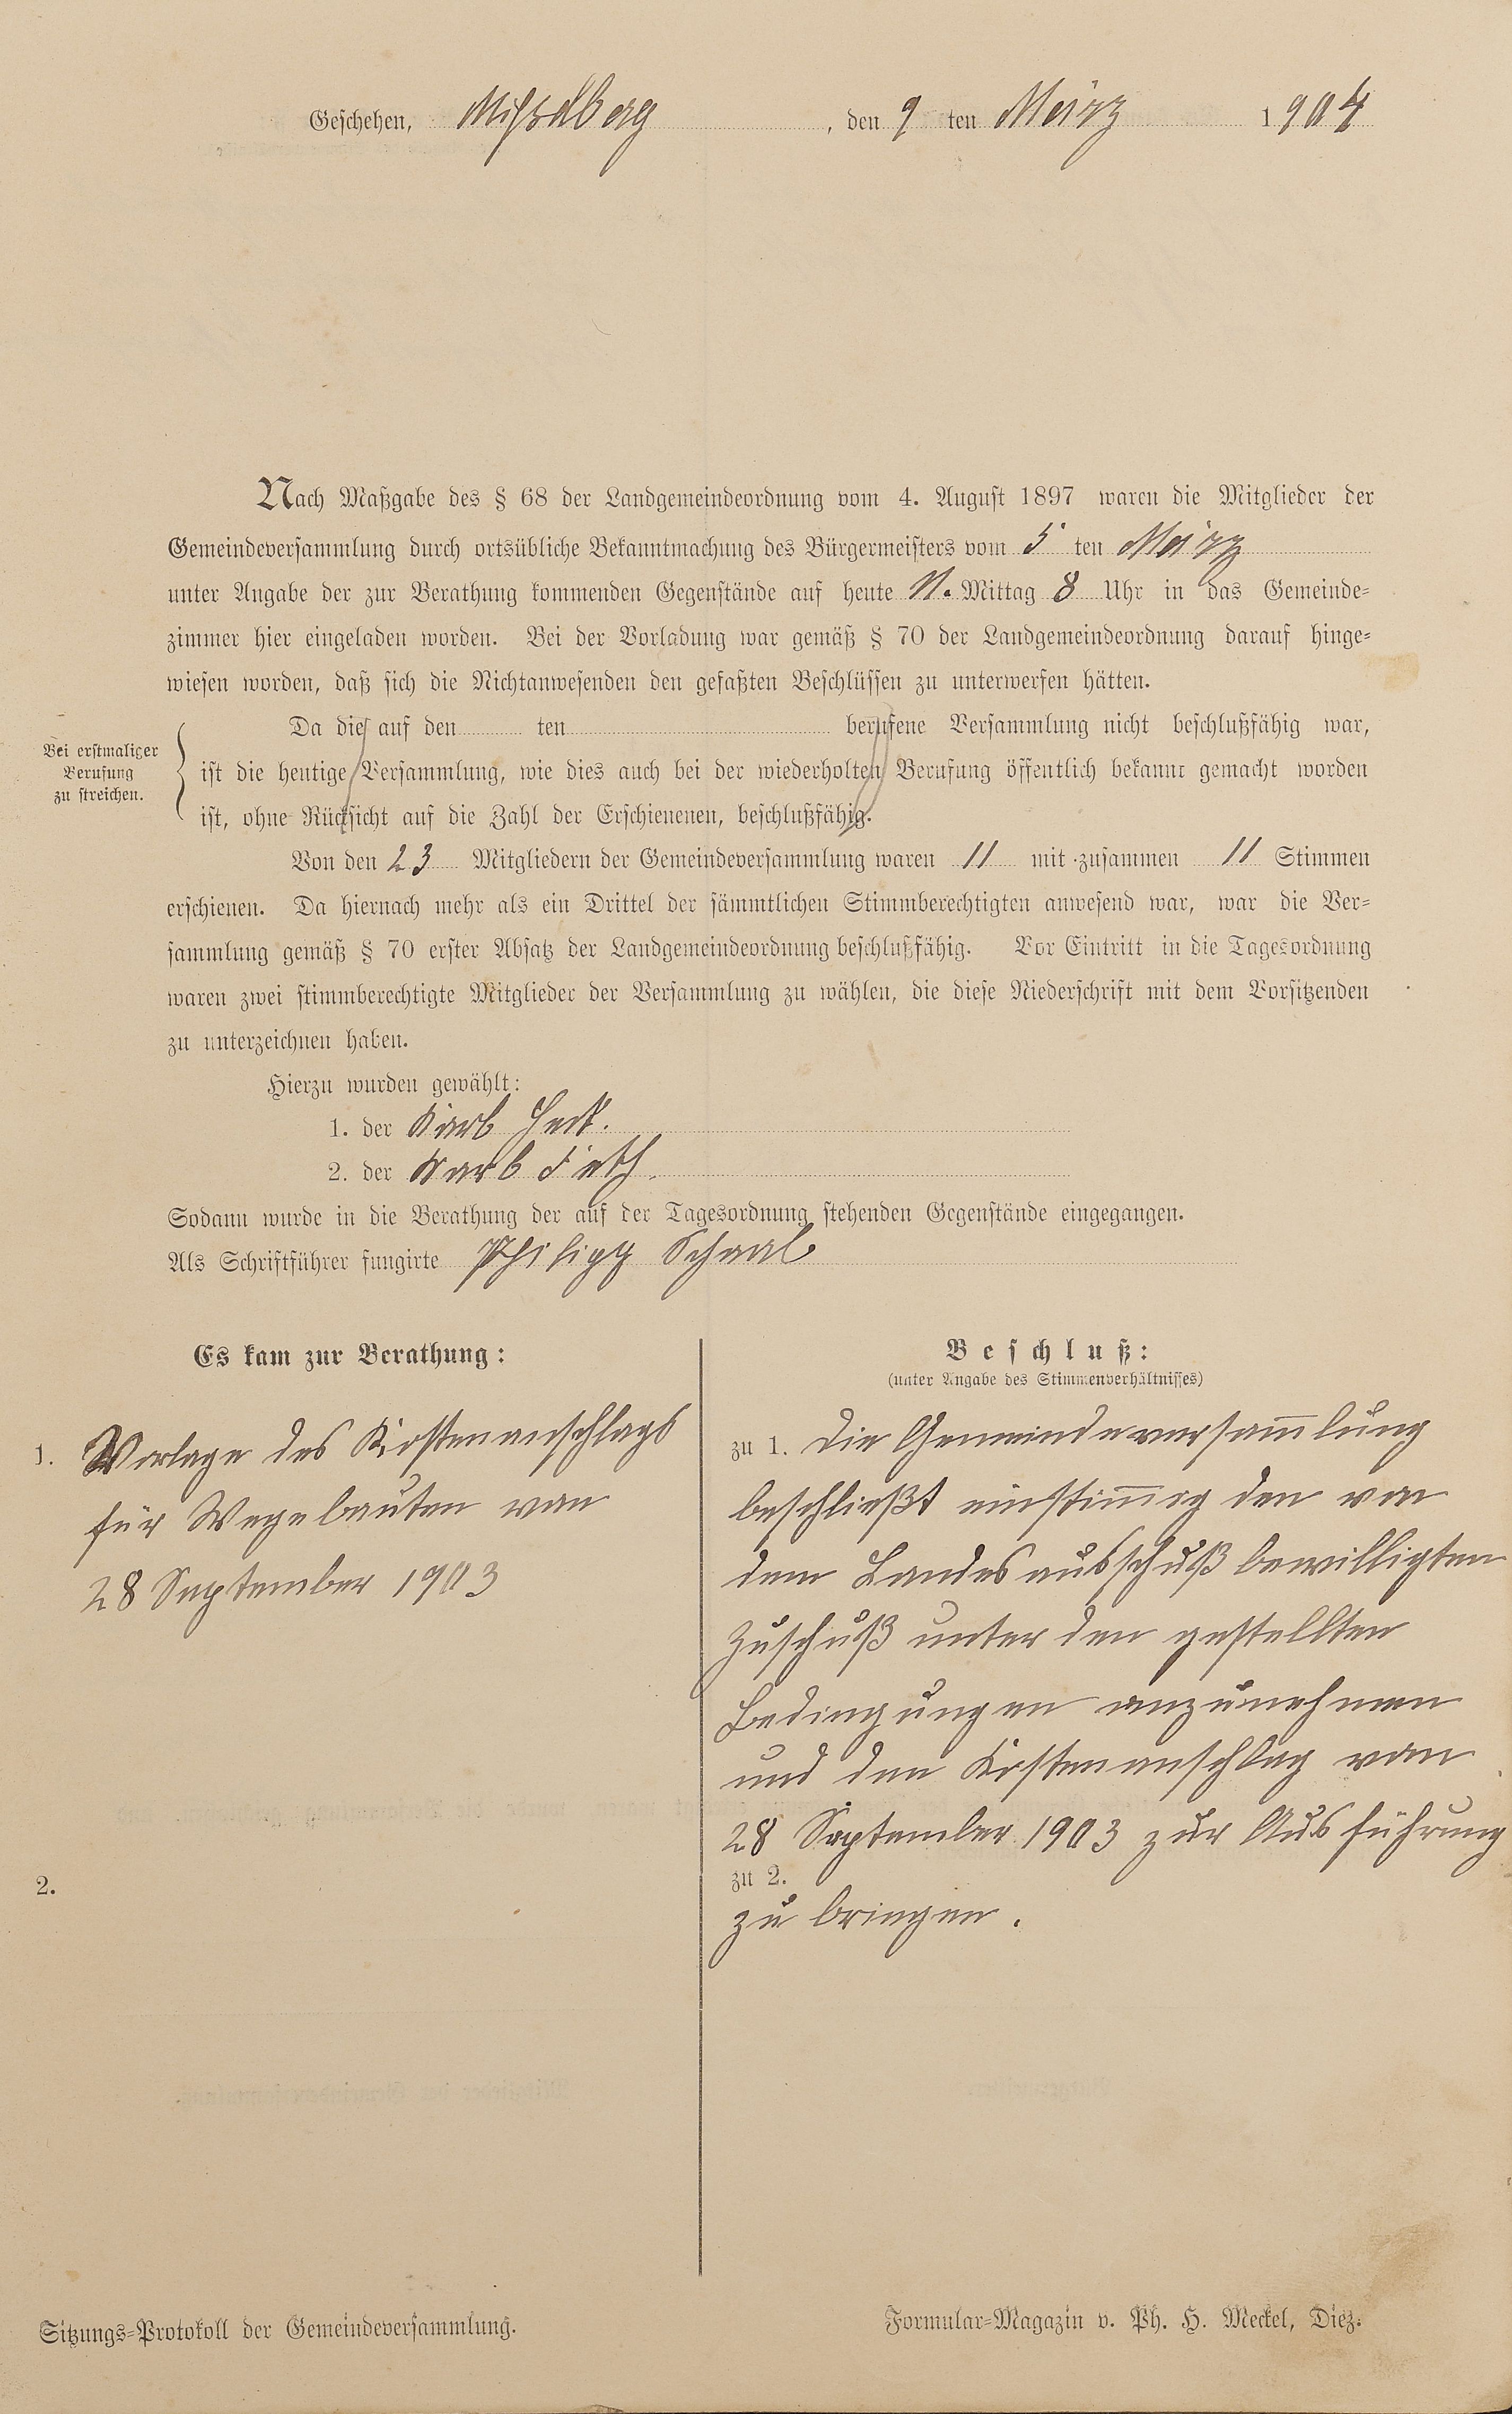 Geschehen, Misselberg, den 9 ten März 1904
Nach Maßgabe des § 68 der Landgemeindeordnung vom 4. August 1897 waren die Mitglieder der
Gemeindeversammlung durch ortsübliche Bekanntmachung des Bürgermeisters vom 5 ten März
unter Angabe der zur Berathung kommenden Gegenstände auf heute N. Mittag 8 Uhr in das Gemeinde-
zimmer hier eingeladen worden. Bei der Vorladung war gemäß § 70 der Landgemeindeordnung darauf hinge-
wiesen worden, daß sich die Nichtanwesenden den gefaßten Beschlüssen zu unterwerfen hätten.
Bei erstmaliger
Berufung
zu streichen.
Da die auf den ten berufene Versammlung nicht beschlußfähig war,
ist die heutige Versammlung, wie dies auch bei der wiederholten Berufung öffentlich bekannt gemacht worden
ist, ohne Rücksicht auf die Zahl der Erschienenen, beschlußfähig.
Von den 23 Mitgliedern der Gemeindeversammlung waren 11 mit zusammen 11 Stimmen
erschienen. Da hiernach mehr als ein Drittel der sämmtlichen Stimmberechtigten anwesend war, war die Ver-
sammlung gemäß § 70 erster Absatz der Landgemeindeordnung beschlußfähig. Vor Eintritt in die Tagesordnung
waren zwei stimmberechtigte Mitglieder der Versammlung zu wählen, die diese Niederschrift mit dem Vorsitzenden
zu unterzeichnen haben.
Hierzu wurden gewählt:
1. der Karl
2. der Karl
Sodann wurde in die Berathung der auf der Tagesordnung stehenden Gegenstände eingegangen.
Als Schriftführer fungirte Philipp Schaal
Es kam zur Berathung:
1. Vorlage des Kostenanschlags
für Wegebauten von
28 September 1903
2.
Beschluß:
(unter Angabe des Stimmenverhältnisses)
zu 1. Die Gemeindeversam̅lung
beschließt einstim̅ig den von
dem Landesausschuß bewilligten
Zuschuß unter den gestellten
Bedingungen anzunehmen
und den Kostenanschlag vom
28 September 1903 zur Ausführung
zu 2.
zu bringen.
Sitzungs-Protokoll der Gemeindeversammlung.
Formular-Magazin v. Ph. H. Meckel, Diez.